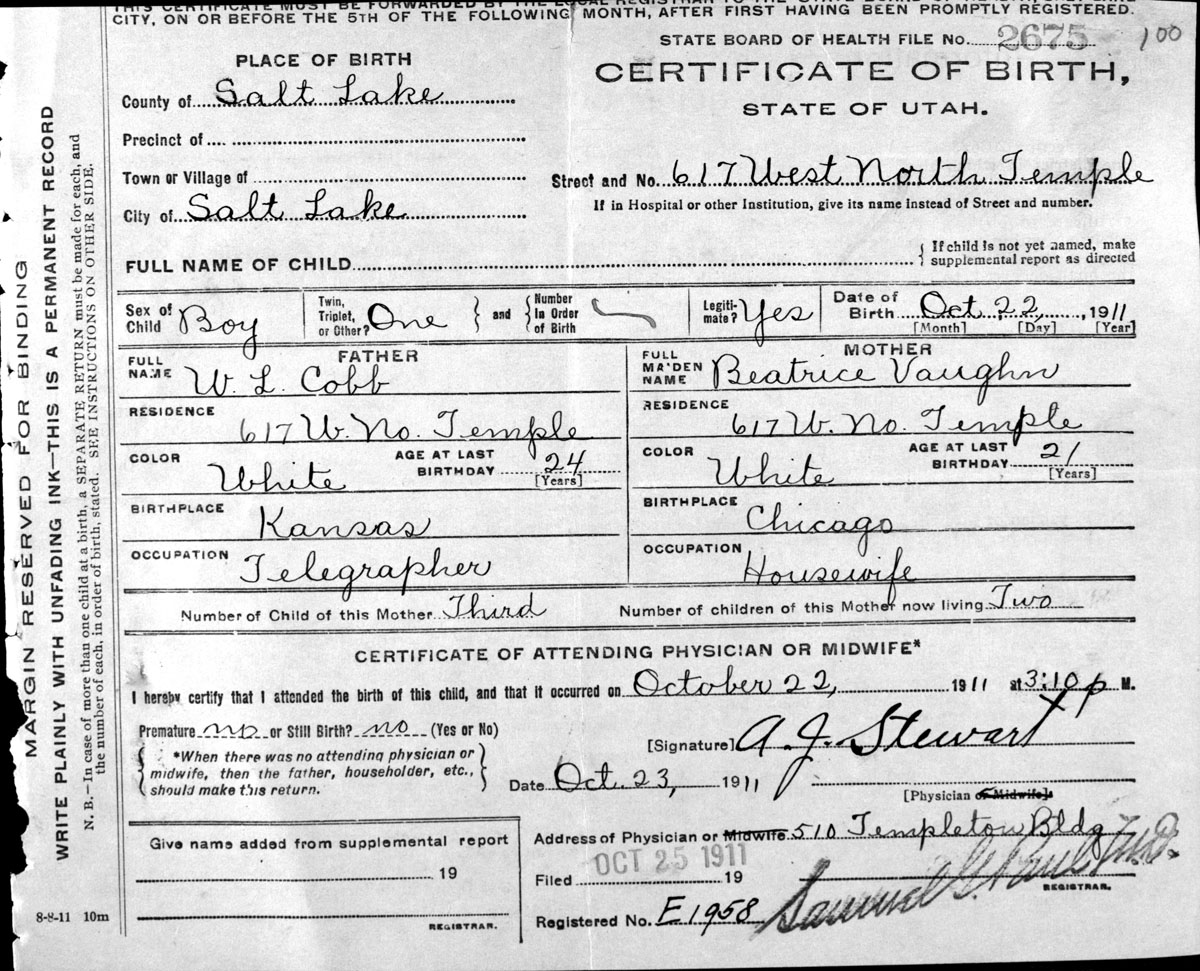 THIS CERTIFICATE MUST BE FORWARDED BY THE LOCAL REGISTRAR TO THE STATE BOARD OF HEALTH,
CITY, ON OR BEFORE THE 5TH OF THE FOLLOWING MONTH, AFTER FIRST HAVING BEEN PROMPTLY REGISTERED.
STATE BOARD OF HEALTH FILE No. 2675 100
PLACE OF BIRTH
CERTIFICATE OF BIRTH,
STATE OF UTAH.
County of Salt Lake
Precinct of
Town or Village of
Street and No. 617 West North Temple
City of Salt Lake
If in Hospital or other Institution, give its name instead of Street and number.
FULL NAME OF CHILD
{ If child is not yet named, make
supplemental report as directed
Sex of Child Boy
Twin, Triplet, or Other? One } and { Number In Order of Birth
Legitimate? Yes
Date of Birth Oct. 22, , 1911
[Month] [Day] [Year]
FATHER
FULL NAME W. L. Cobb
RESIDENCE 617 W. No. Temple
COLOR White AGE AT LAST BIRTHDAY 24 [Years]
BIRTHPLACE Kansas
OCCUPATION Telegrapher
MOTHER
FULL MAIDEN NAME Beatrice Vaughn
RESIDENCE 617 W. No. Temple
COLOR White AGE AT LAST BIRTHDAY 21 [Years]
BIRTHPLACE Chicago
OCCUPATION Housewife
Number of Child of this Mother Third Number of children of this Mother now living Two
CERTIFICATE OF ATTENDING PHYSICIAN OR MIDWIFE*
I hereby certify that I attended the birth of this child, and that it occurred on October 22, 1911 at 3:10 p M.
Premature no or Still Birth? no (Yes or No)
{ *When there was no attending physician or
midwife, then the father, householder, etc.,
should make this return. }
[Signature] A. J. Stewart
Date Oct. 23, 1911
[Physician or Midwife]
Give name added from supplemental report
19
REGISTRAR.
Address of Physician or Midwife 510 Templeton Bldg
OCT 25 1911
Filed 19
Samuel G. Paul M.D.
REGISTRAR.
Registered No. E1958
8-8-11 10m
MARGIN RESERVED FOR BINDING
WRITE PLAINLY WITH UNFADING INK—THIS IS A PERMANENT RECORD
N. B.—In case of more than one child at a birth, a SEPARATE RETURN must be made for each, and
the number of each, in order of birth, stated. SEE INSTRUCTIONS ON OTHER SIDE.